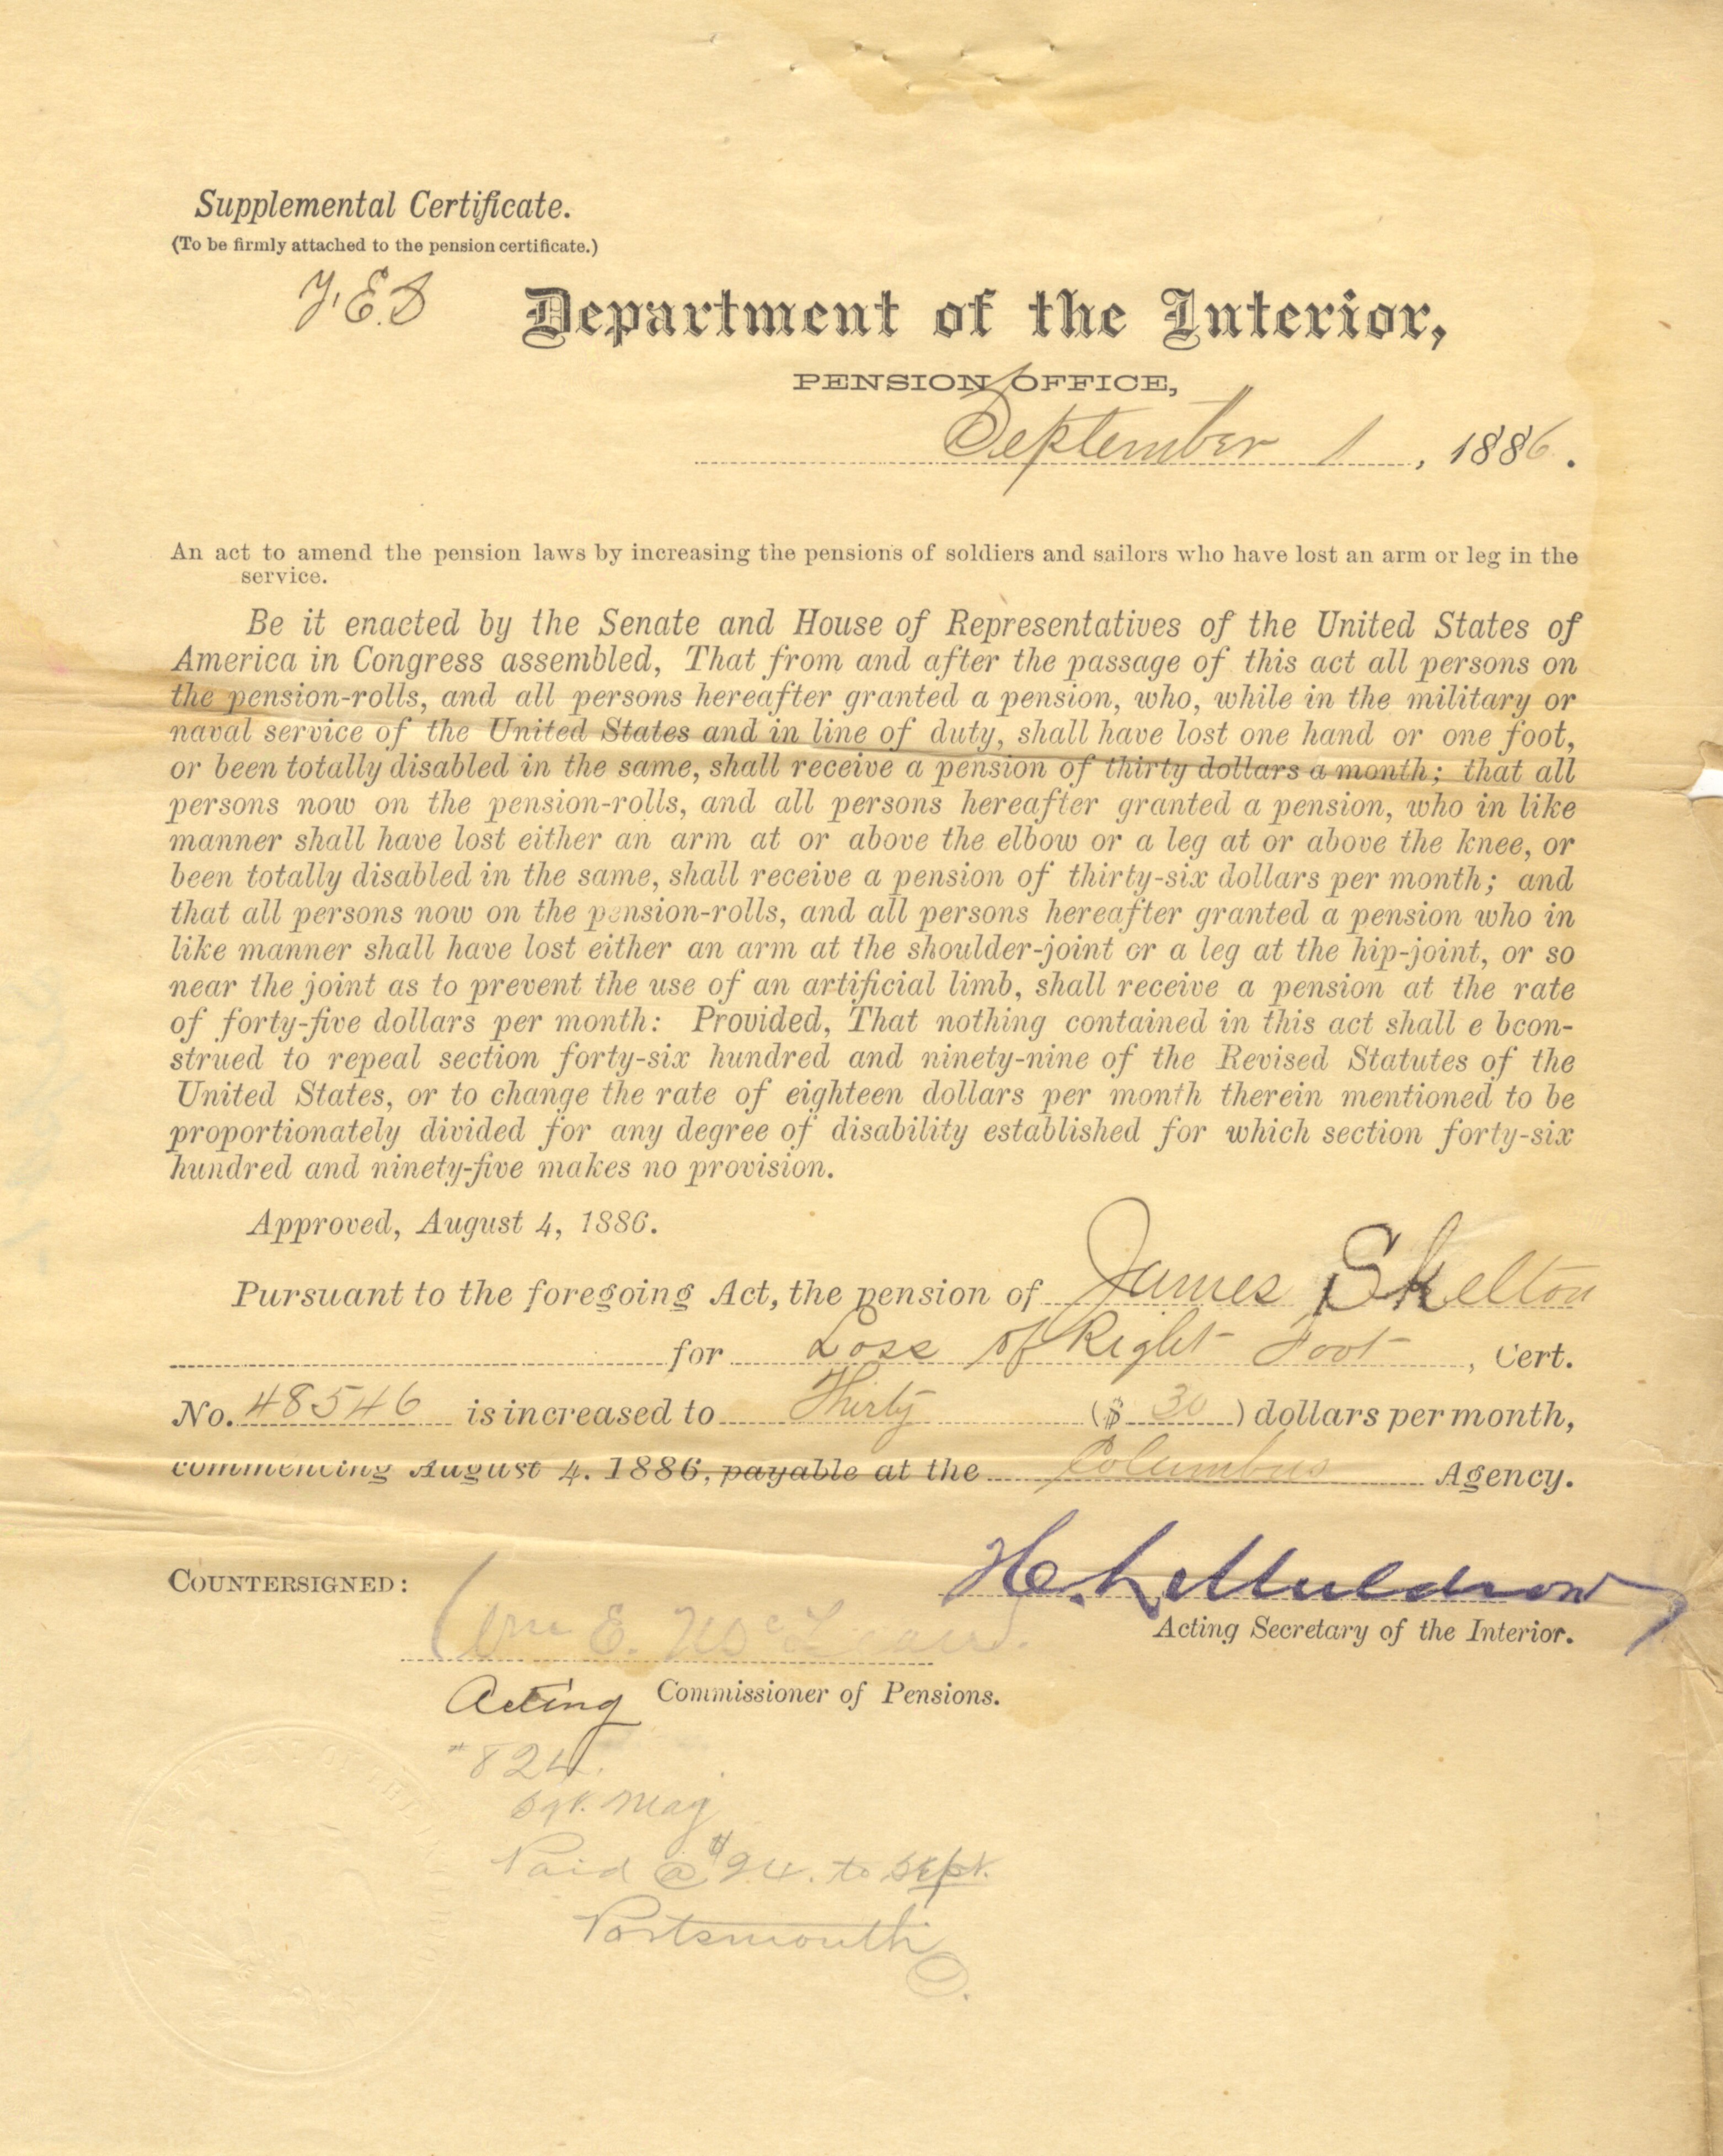 Supplemental Certificate.
(To be firmly attached to the pension certificate.)
Department of the Interior,
PENSION OFFICE,
September 1, 1886.
An act to amend the pension laws by increasing the pensions of soldiers and sailors who have lost an arm or leg in the
service.
Be it enacted by the Senate and House of Representatives of the United States of
America in Congress assembled, That from and after the passage of this act all persons on
the pension-rolls, and all persons hereafter granted a pension, who, while in the military or
naval service of the United States and in line of duty, shall have lost one hand or one foot,
or been totally disabled in the same, shall receive a pension of thirty dollars a month; that all
persons now on the pension-rolls, and all persons hereafter granted a pension, who in like
manner shall have lost either an arm at or above the elbow or a leg at or above the knee, or
been totally disabled in the same, shall receive a pension of thirty-six dollars per month; and
that all persons now on the pension-rolls, and all persons hereafter granted a pension who in
like manner shall have lost either an arm at the shoulder-joint or a leg at the hip-joint, or so
near the joint as to prevent the use of an artificial limb, shall receive a pension at the rate
of forty-five dollars per month: Provided, That nothing contained in this act shall e bcon-
strued to repeal section forty-six hundred and ninety-nine of the Revised Statutes of the
United States, or to change the rate of eighteen dollars per month therein mentioned to be
proportionately divided for any degree of disability established for which section forty-six
hundred and ninety-five makes no provision.
Approved, August 4, 1886.
Pursuant to the foregoing Act, the pension of James Skelton
for Loss of Right Foot, Cert.
No. 48546 is increased to Thirty ($ 30) dollars per month,
commencing August 4, 1886, payable at the Columbus Agency.
H. L. Muldrow
COUNTERSIGNED:
Acting Secretary of the Interior.
Wm E. McLean.
Acting Commissioner of Pensions.
Paid @ $24. to Sept.
Portsmouth
O.